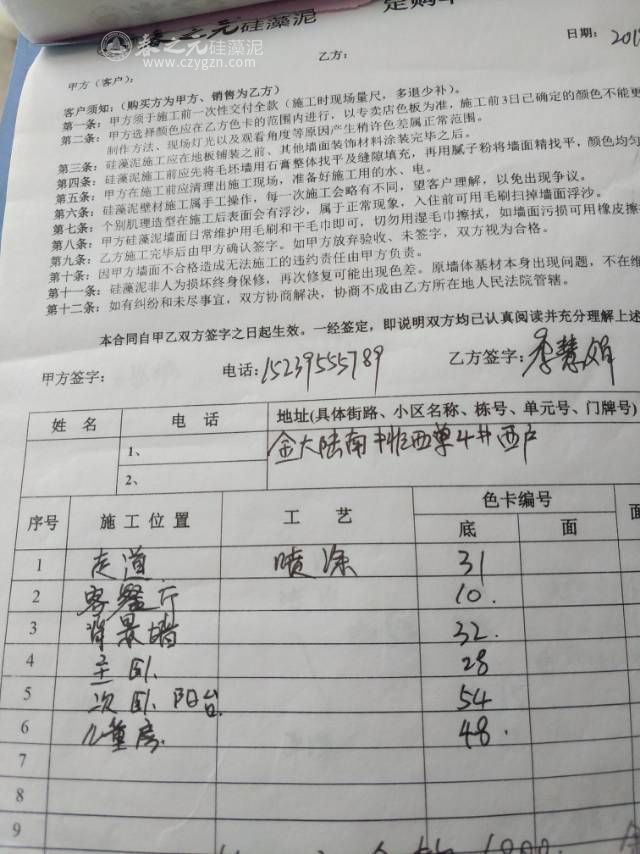 春之元硅藻泥
www.czygzn.com
硅藻泥
日期：201
甲方（客户）：
乙方：
客户须知：（购买方为甲方、销售为乙方）
第一条：甲方须于施工前一次性交付全款（施工时现场量尺，多退少补）。
第二条：甲方选择颜色应在乙方色卡的范围内进行，以专卖店色板为准，施工前3日已确定的颜色不能更
制作方法、现场灯光以及观看角度等原因产生稍许色差属正常范围。
第三条：硅藻泥施工应在地板铺装之前、其他墙面装饰材料涂装完毕之后。
第四条：硅藻泥施工前应先将毛坯墙用石膏整体找平及缝隙填充，再用腻子粉将墙面精找平，颜色均匀
第五条：甲方在施工前应清理出施工现场，准备好施工用的水、电。
第六条：硅藻泥壁材施工属手工操作，每一次施工会略有不同，望客户理解，以免出现争议。
第七条：个别肌理造型在施工后表面会有浮沙，属于正常现象，入住前可用毛刷扫掉墙面浮沙。
第八条：甲方硅藻泥墙面日常维护用毛刷和干毛巾即可，切勿用湿毛巾擦拭，如墙面污损可用橡皮擦
第九条：乙方施工完毕后由甲方确认签字。如甲方放弃验收、未签字，双方视为合格。
第十条：因甲方墙面不合格造成无法施工的违约责任由甲方负责。
第十一条：硅藻泥非人为损坏终身保修，再次修复可能出现色差。原墙体基材本身出现问题，不在维
第十二条：如有纠纷和未尽事宜，双方协商解决，协商不成由乙方所在地人民法院管辖。
本合同自甲乙双方签字之日起生效。一经签定，即说明双方均已认真阅读并充分理解上述
甲方签字：
电话：15239555789
乙方签字：李慧娟
姓名 电话 地址(具体街路、小区名称、栋号、单元号、门牌号)
1、
金大陆南 西单4井西户
2、
序号 施工位置 工艺 色卡编号
底 面
1 走道 喷涂 31
2 客餐厅 10.
3 背景墙 32.
4 主卧. 28
5 次卧.阳台. 54
6 儿童房. 48.
7
8
9